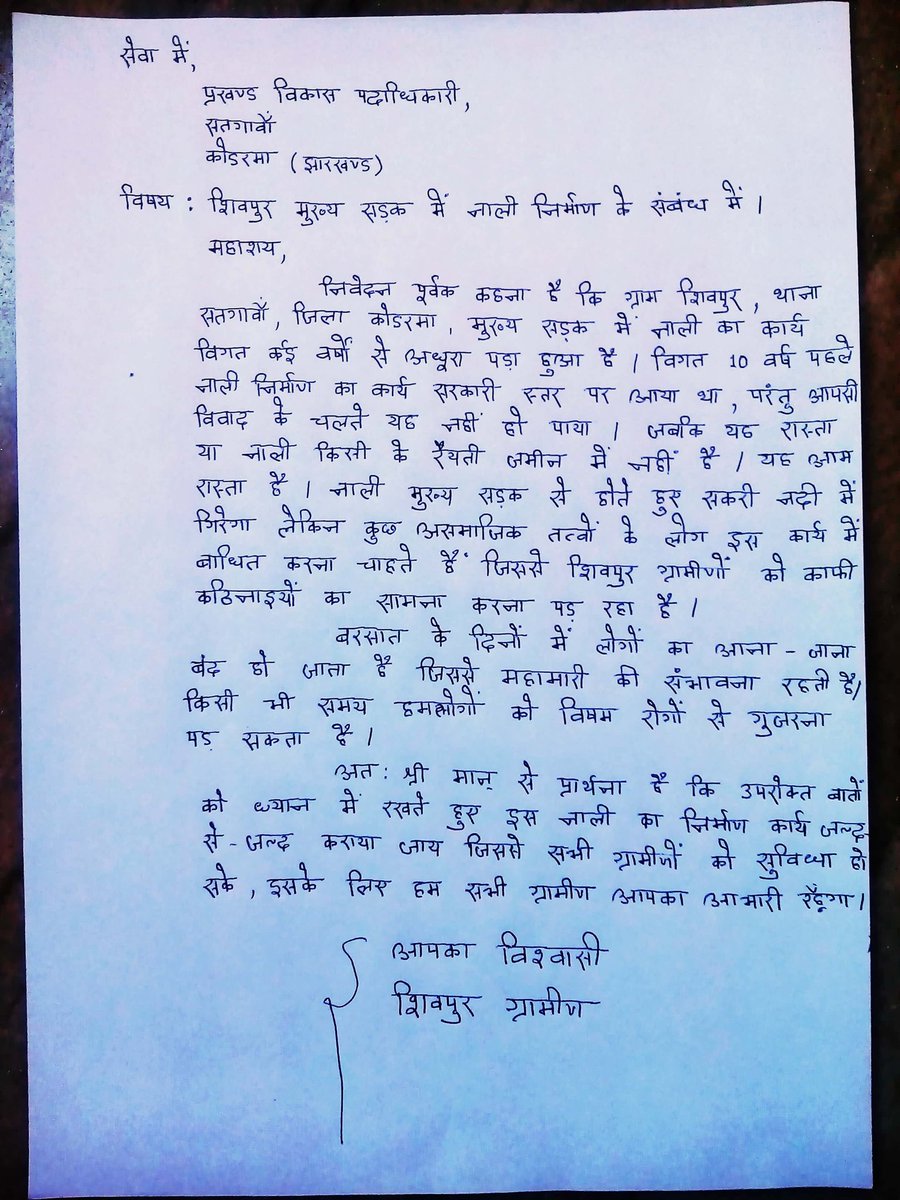 सेवा में,
प्रखण्ड विकास पदाधिकारी,
सतगावाँ
कोडरमा (झारखण्ड)
विषय : शिवपुर मुख्य सड़क में नाली निर्माण के संबंध में।
महाशय,
निवेदन पूर्वक कहना है कि ग्राम शिवपुर, थाना
सतगावाँ, जिला कोडरमा, मुख्य सड़क में नाली का कार्य
विगत कई वर्षों से अधूरा पड़ा हुआ है। विगत 10 वर्ष पहले
नाली निर्माण का कार्य सरकारी स्तर पर आया था, परंतु आपसी
विवाद के चलते यह नहीं हो पाया। जबकि यह रास्ता
या नाली किसी के रैयती जमीन में नहीं है। यह आम
रास्ता है। नाली मुख्य सड़क से होते हुए सकरी नदी में
गिरेगा लेकिन कुछ असमाजिक तत्वों के लोग इस कार्य में
बाधित करना चाहते हैं जिससे शिवपुर ग्रामीणों को काफी
कठिनाइयों का सामना करना पड़ रहा है।
बरसात के दिनों में लोगों का आना-जाना
बंद हो जाता है जिससे महामारी की संभावना रहती है।
किसी भी समय हमलोगों को विषम रोगों से गुजरना
पड़ सकता है।
अत: श्री मान् से प्रार्थना है कि उपरोक्त बातों
को ध्यान में रखते हुए इस नाली का निर्माण कार्य जल्द-
से-जल्द कराया जाय जिससे सभी ग्रामीणों को सुविधा हो
सके, इसके लिए हम सभी ग्रामीण आपका आभारी रहूँगा।
आपका विश्वासी
शिवपुर ग्रामीण